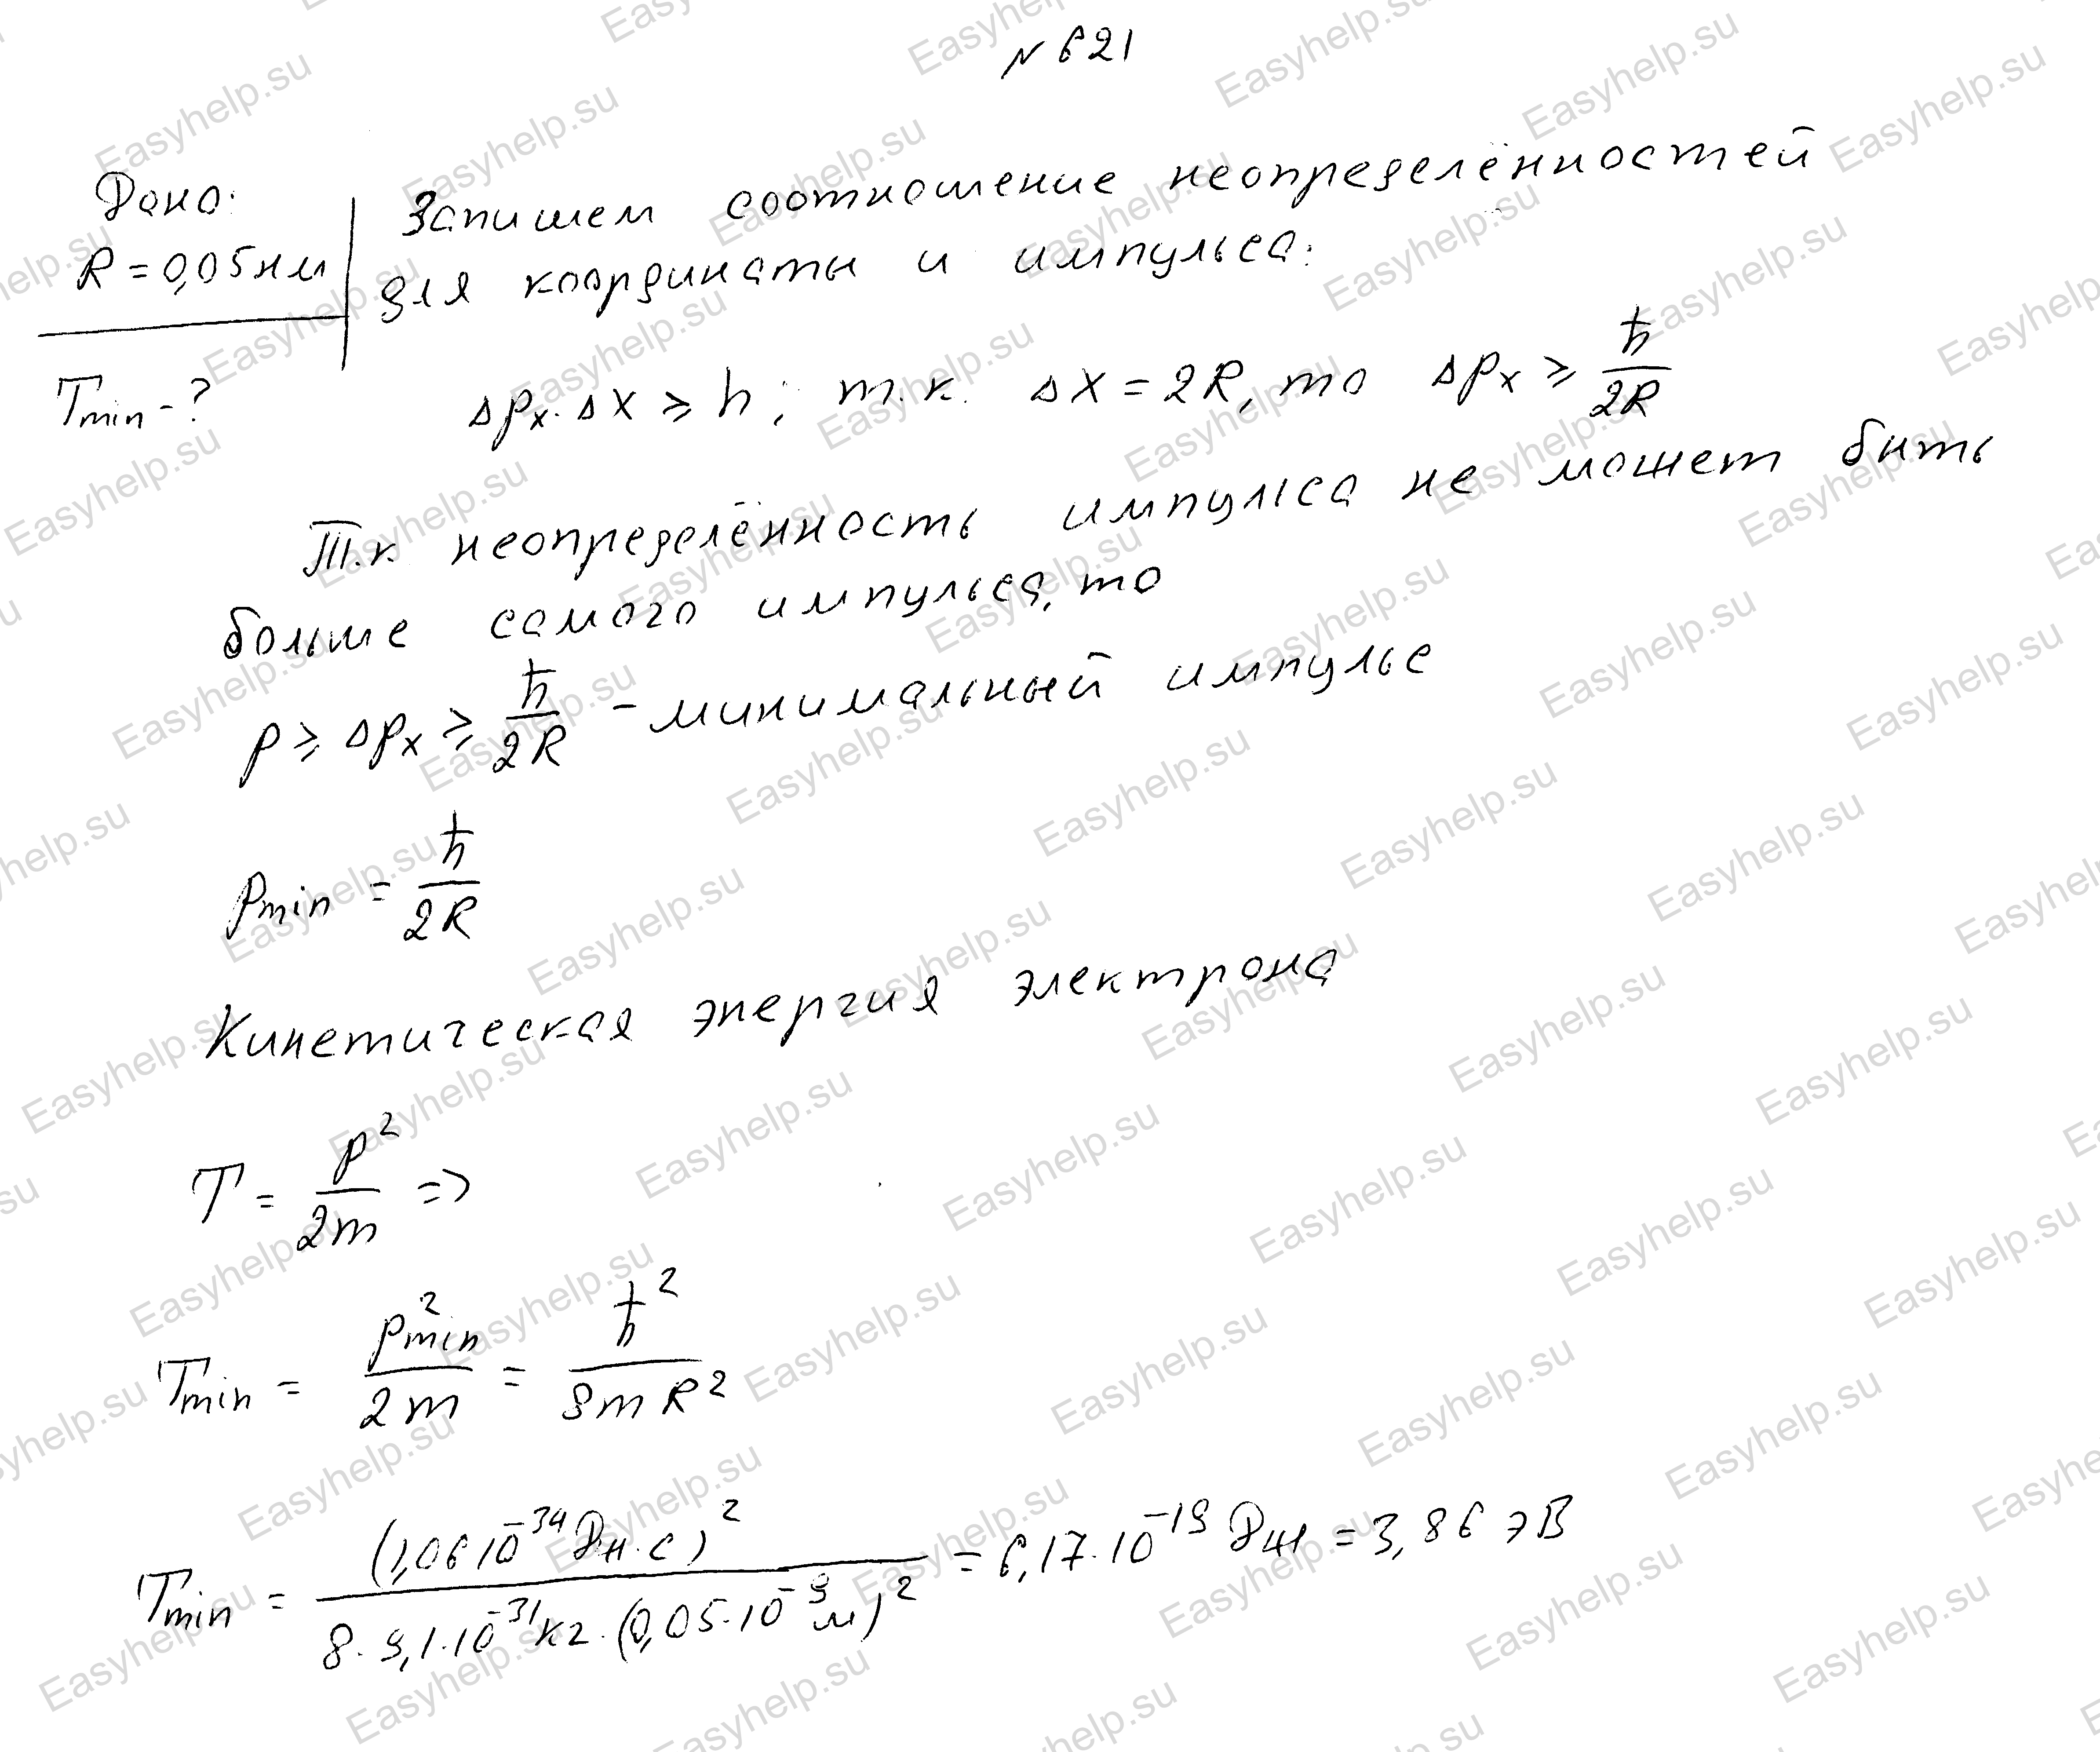 № 621
Дано:
R = 0,05 нм
Tmin - ?
Запишем соотношение неопределённостей
для координаты и импульса:
Δpx · Δx ≥ h; т.к. Δx = 2R, то Δpx ≥ ħ/2R
Т.к неопределённость импульса не может быть
больше самого импульса, то
p ≥ Δpx ≥ ħ/2R - минимальный импульс
pmin = ħ/2R
Кинетическая энергия электрона
T = p²/2m =>
Tmin = p²min/2m = ħ²/8mR²
Tmin = (1,06 10⁻³⁴ Дж·с)² / 8·9,1·10⁻³¹кг·(0,05·10⁻⁹м)² = 6,17·10⁻¹⁹ Дж = 3,86 эВ
Easyhelp.su